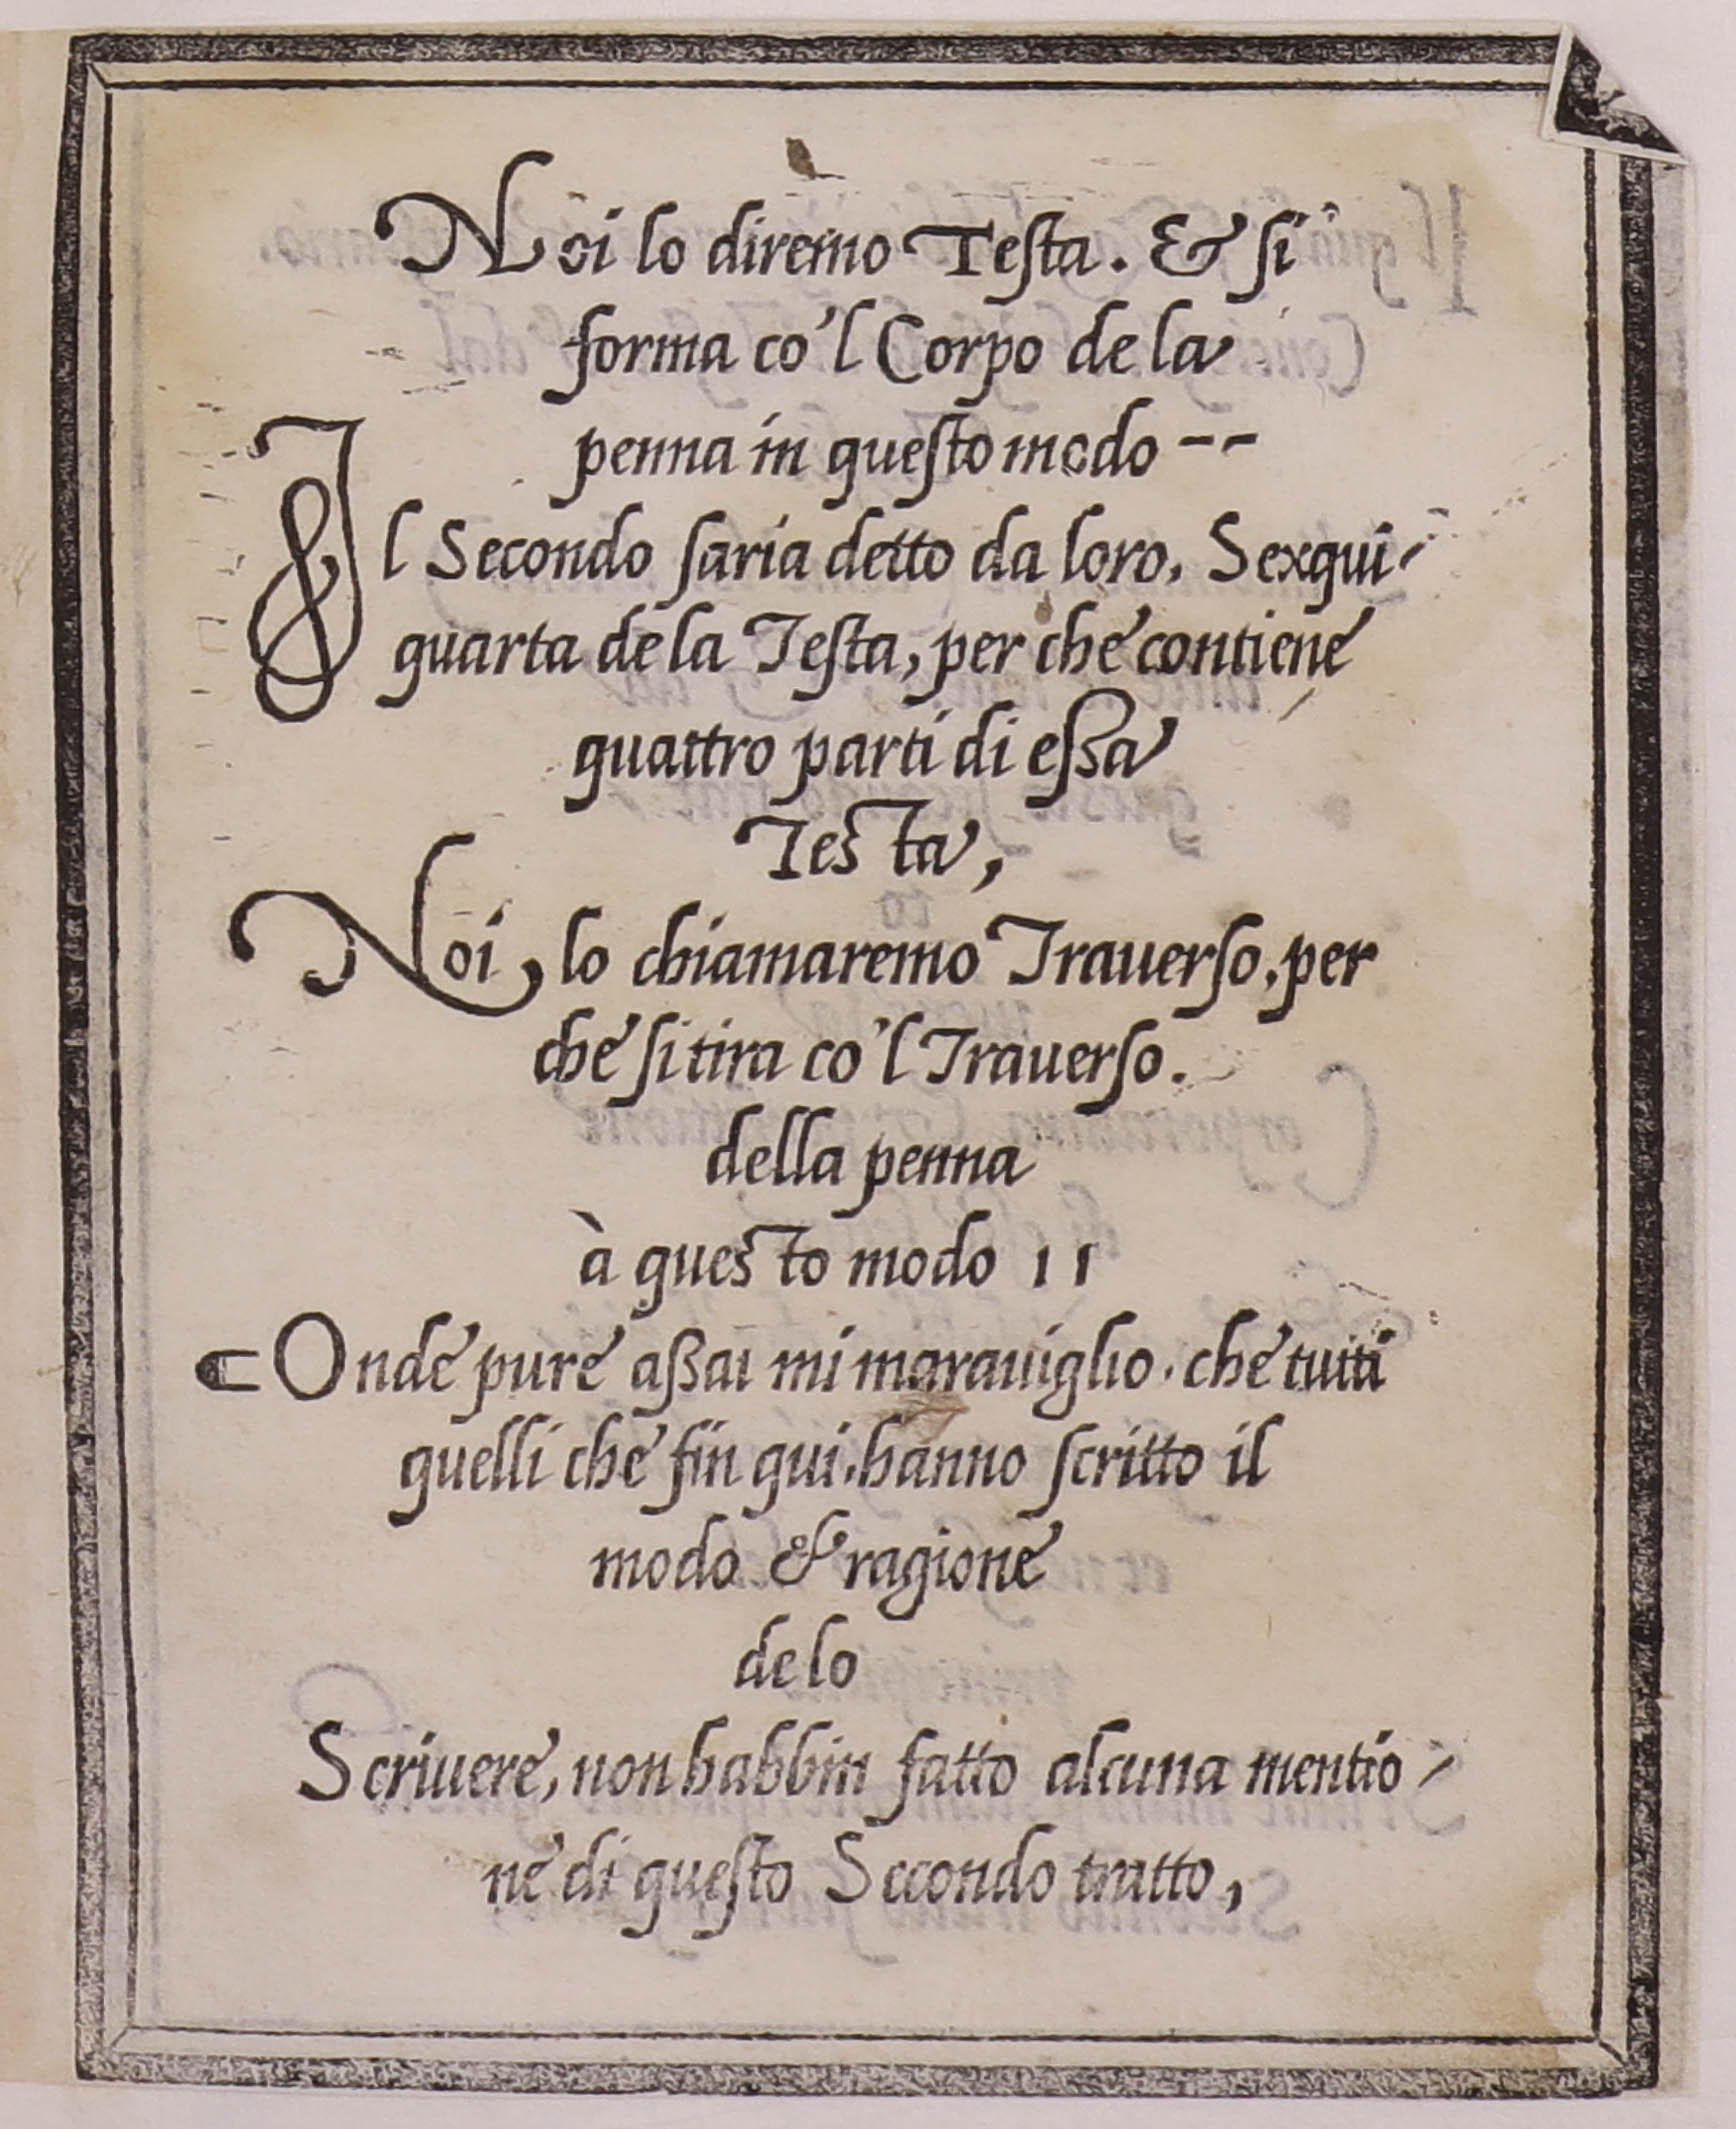 Noi lo diremo Testa. & si
forma co'l Corpo de la
penna in questo modo --
Il Secondo saria detto da loro, Sexqui-
quarta de la Testa, per che contiene
quattro parti di eßa
Testa,
Noi, lo chiamaremo Trauerso, per
che si tira co'l Trauerso.
della penna
à questo modo ı ı
Onde pure aßai mi marauiglio, che tutti
quelli che fin qui, hanno scritto il
modo & ragione
de lo
Scriuere, non habbin fatto alcuna mentio-
ne di questo Secondo tratto,